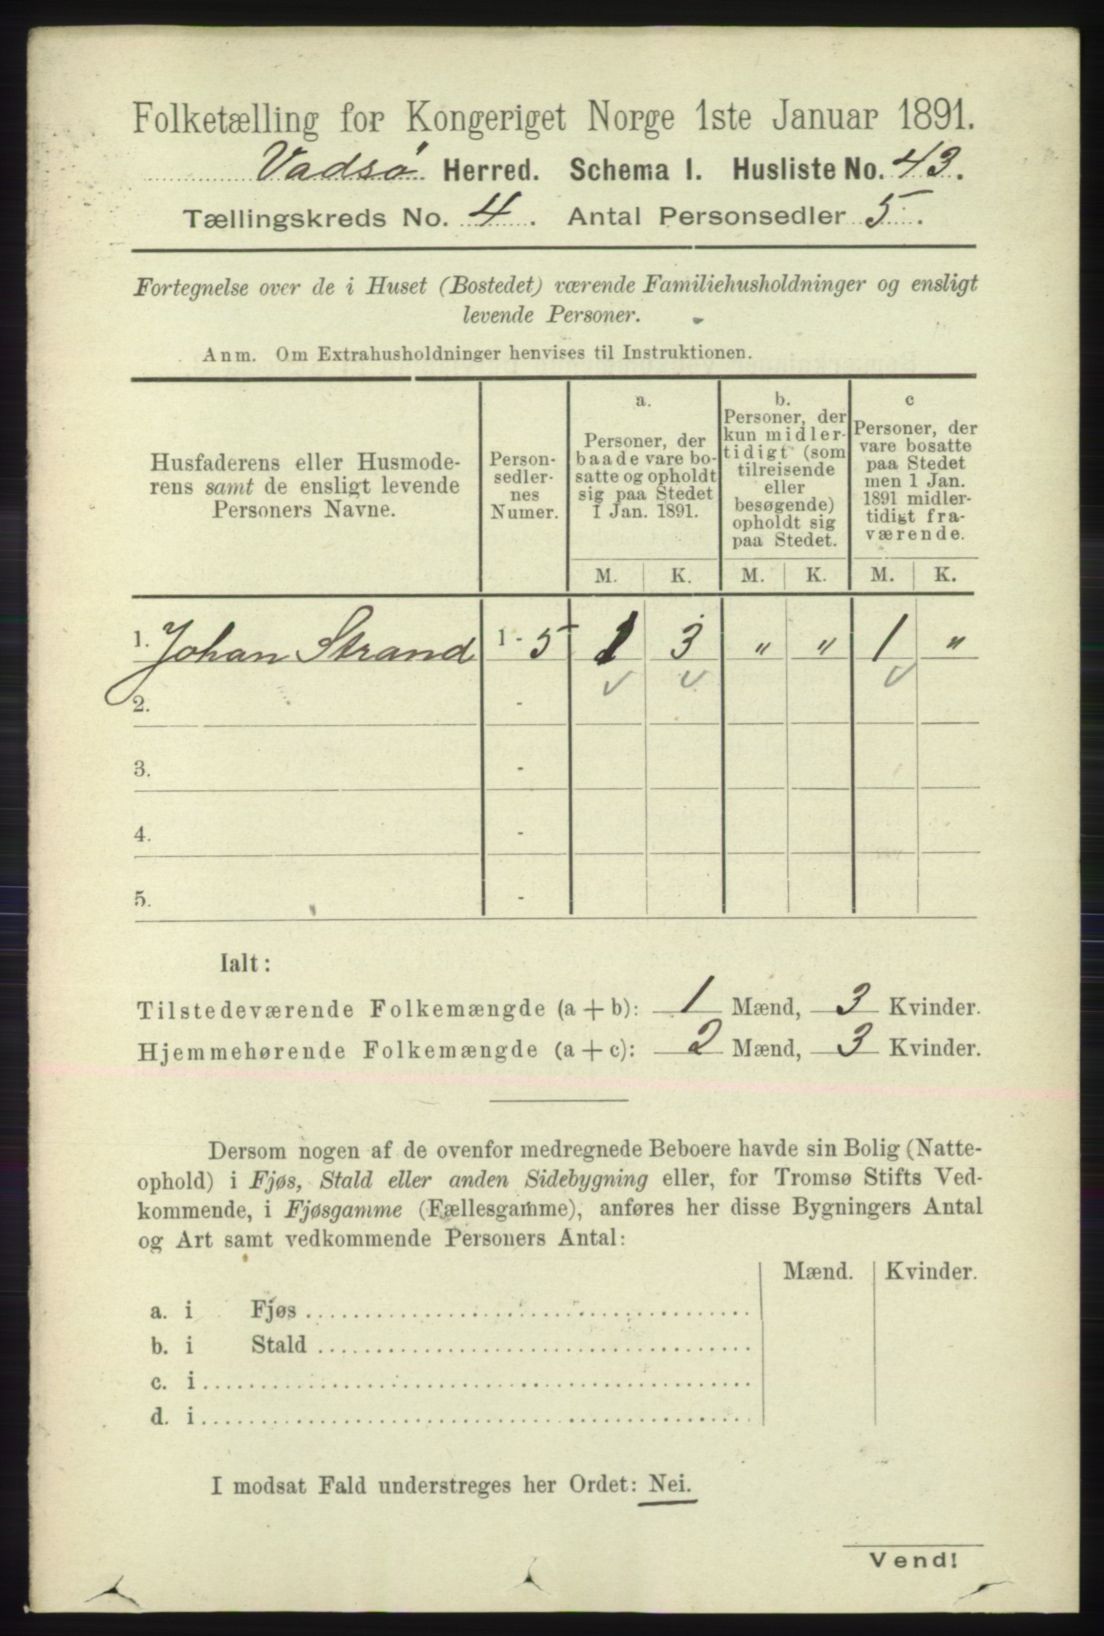 Folketælling for Kongeriget Norge 1ste Januar 1891.
Vadsø Herred. Schema I. Husliste No. 43.
Tællingskreds No. 4. Antal Personsedler 5.
Fortegnelse over de i Huset (Bostedet) værende Familiehusholdninger og ensligt
levende Personer.
Anm. Om Extrahusholdninger henvises til Instruktionen.
Husfaderens eller Husmode-
rens samt de ensligt levende
Personers Navne.
Person-
sedler-
nes
Numer.
a.
Personer, der
baade vare bo-
satte og opholdt
sig paa Stedet
1 Jan. 1891.
b.
Personer, der
kun midler-
tidigt (som
tilreisende
eller
besøgende)
opholdt sig
paa Stedet.
c
Personer, der
vare bosatte
paa Stedet
men 1 Jan.
1891 midler-
tidigt fra-
værende.
M. K. M. K. M. K.
1. Johan Strand 1 - 5 1 3 " " 1 "
2. -
3. -
4. -
5. -
Ialt:
Tilstedeværende Folkemængde (a + b): 1 Mænd, 3 Kvinder.
Hjemmehørende Folkemængde (a + c): 2 Mænd, 3 Kvinder.
Dersom nogen af de ovenfor medregnede Beboere havde sin Bolig (Natte-
ophold) i Fjøs, Stald eller anden Sidebygning eller, for Tromsø Stifts Ved-
kommende, i Fjøsgamme (Fællesgamme), anføres her disse Bygningers Antal
og Art samt vedkommende Personers Antal:
Mænd. Kvinder.
a. i Fjøs
b. i Stald
c. i
d. i
I modsat Fald understreges her Ordet: Nei.
Vend!